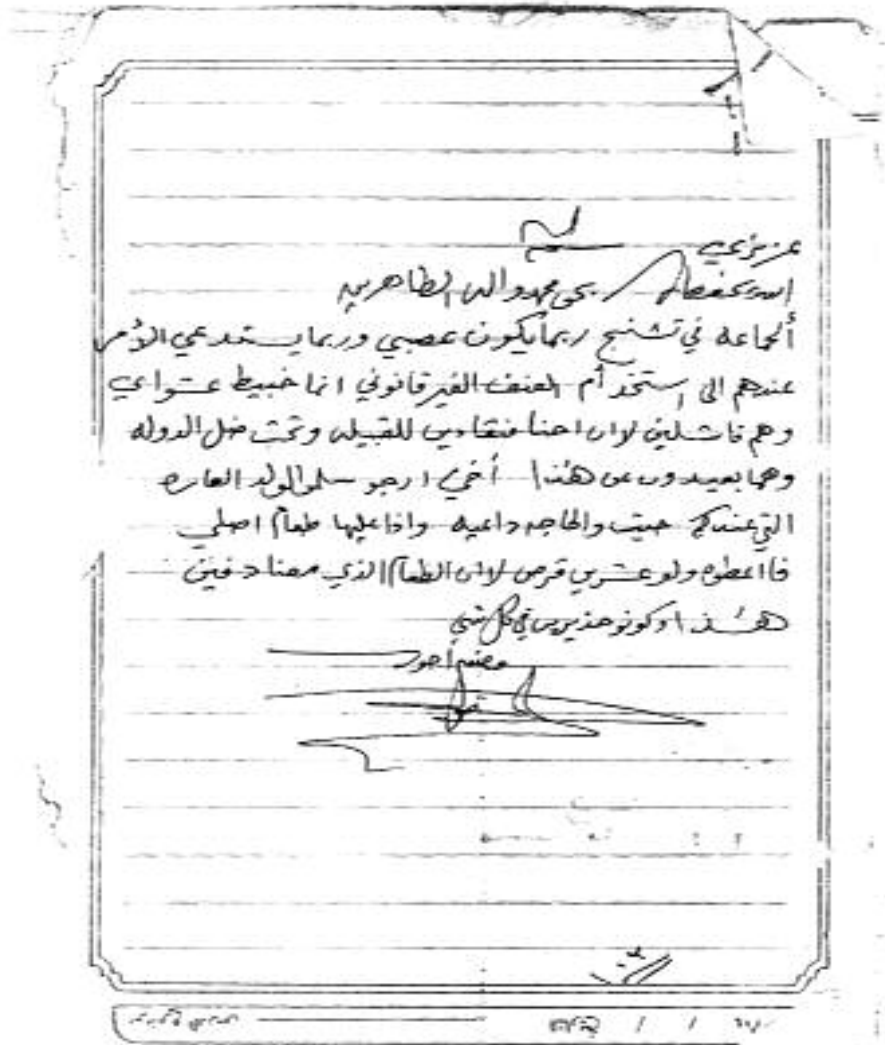 عزيزي
الله يحفظه / بحق محمد واله الطاهرين
ألجماعه في تشنج ربما يكون عصبي وربما يستدعي الأمر
عندهم الى إستخدأم العنف الغير قانوني انما خبيط عشواي
وهم فاشلين لان احنا منقادين للقبيله وتحت ضل الدوله
وهما بعيدون عن هذا أخي ارجو سلموا لولد العاره
التي عندكم حيث والحاجه داعيه واذا عليها طعام اصلي
فااعطوه ولو عشرين قرص لان الطعام الذي معنا دفين
هــذا وكونو حذيرين في كل شي